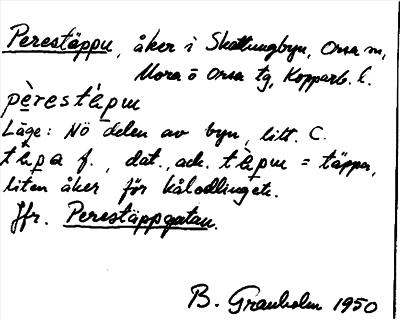 Perestäppu, åker i Skattungbyn, Orsa sn,
Mora o Orsa tg, Kopparb. l.
pèrestä̀pu
Läge: NÖ delen av byn, litt. C.
tä̀pa f., dat., ack. tä̀pu = täppa,
liten åker för kålodling etc.
Jfr. Perestäppgatan.
B. Granholm 1950